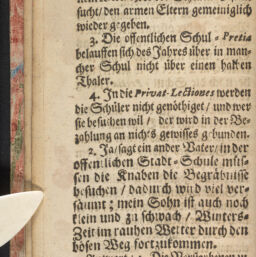 sucht/ den armen Eltern gemeiniglich
wieder gegeben.
3. Die offentlichen Schul-Pretia
belauffen sich des Jahres über in man-
cher Schul nicht über einen halben
Thaler.
4. In die Privat-Lectiones werden
die Schüler nicht genöthiget/ und wer
sie besuchen wil/ der wird in der Be-
zahlung an nichts gewisses gebunden.
2. Ja/ sagt ein ander Vater/ in der
offentlichen Stadt-Schule müs-
sen die Knaben die Begräbnisse
besuchen/ dadurch wird viel ver-
säumt; mein Sohn ist auch noch
klein und zu schwach/ Winters-
Zeit im rauhen Wetter durch den
bösen Weg fortzukommen.